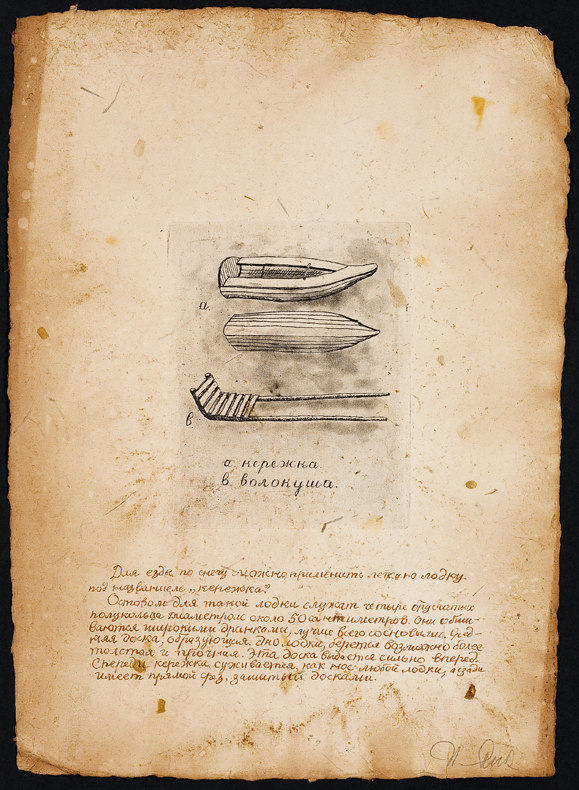 а.
в.
а. кережка.
в. волокуша.
Для езды по снегу можно применить легкую лодку
под названием „кережка“.
Остовом для такой лодки служат четыре
полукольца диаметром около 50 сантиметров. Они обши-
ваются широкими дранками, лучше всего сосновыми.
няя доска, образующая дно лодки, берется возможно более
толстая и прочная. Эта доска выдается сильно вперед.
Спереди кережка суживается, как нос любой лодки, а сзади
имеет прямой срез, зашитый досками.